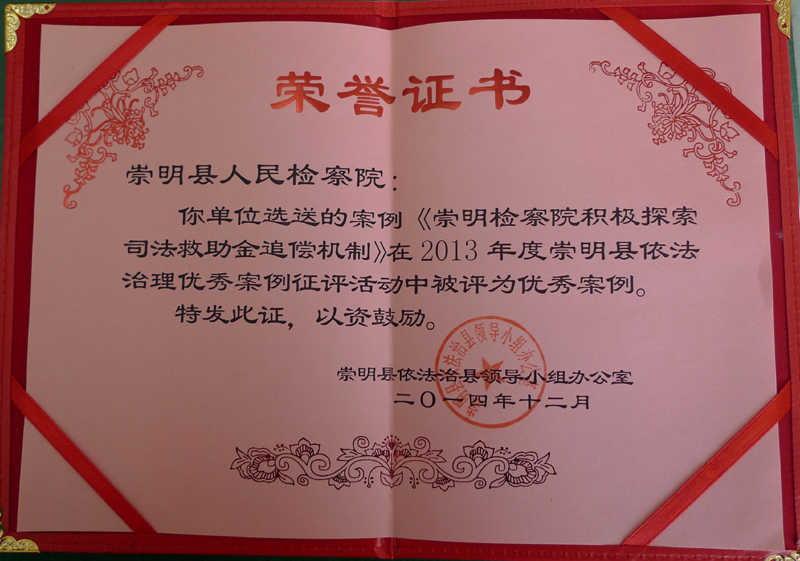 荣誉证书
崇明县人民检察院：
你单位选送的案例《崇明检察院积极探索
司法救助金追偿机制》在2013年度崇明县依法
治理优秀案例征评活动中被评为优秀案例。
特发此证，以资鼓励。
崇明县依法治县领导小组办公室
二〇一四年十二月
崇明县依法治县领导小组办公室